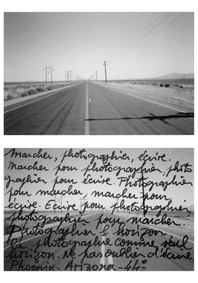 Marcher, photographier, écrire.
Marcher pour photographier, photo
graphier pour écrire. Photographier
pour marcher marcher pour
écrire. Ecrire pour photographier,
photographier pour marcher.
Photographier l'horizon
photographie comme seul
horizon. Ne pas oublier d'écrire
Phoenix. Arizona